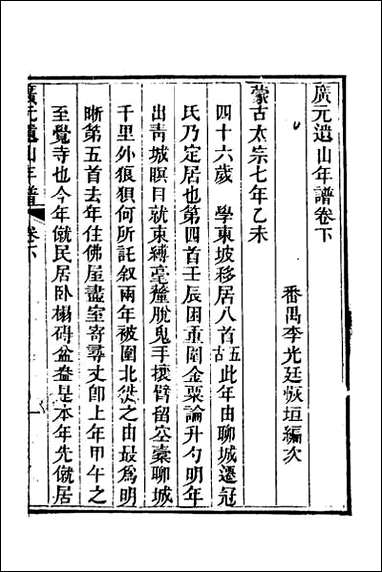 廣元遺山年譜卷下
番禺李光廷恢垣編次
蒙古太宗七年乙未
四十六歲 學東坡移居八首五古此年由聊城遷冠
氏乃定居也第四首壬辰困重圍金粟論升勺明年
出青城瞑目就束縛毫釐脫鬼手攘臂留空橐聊城
千里外狼狽何所託叙兩年被圍北徙之由最為明
晰第五首去年住佛屋盡室寄尋丈卽上年甲午之
至覺寺也今年僦民居臥榻碍盆盎是本年先僦居
廣元遺山年譜 卷下
一